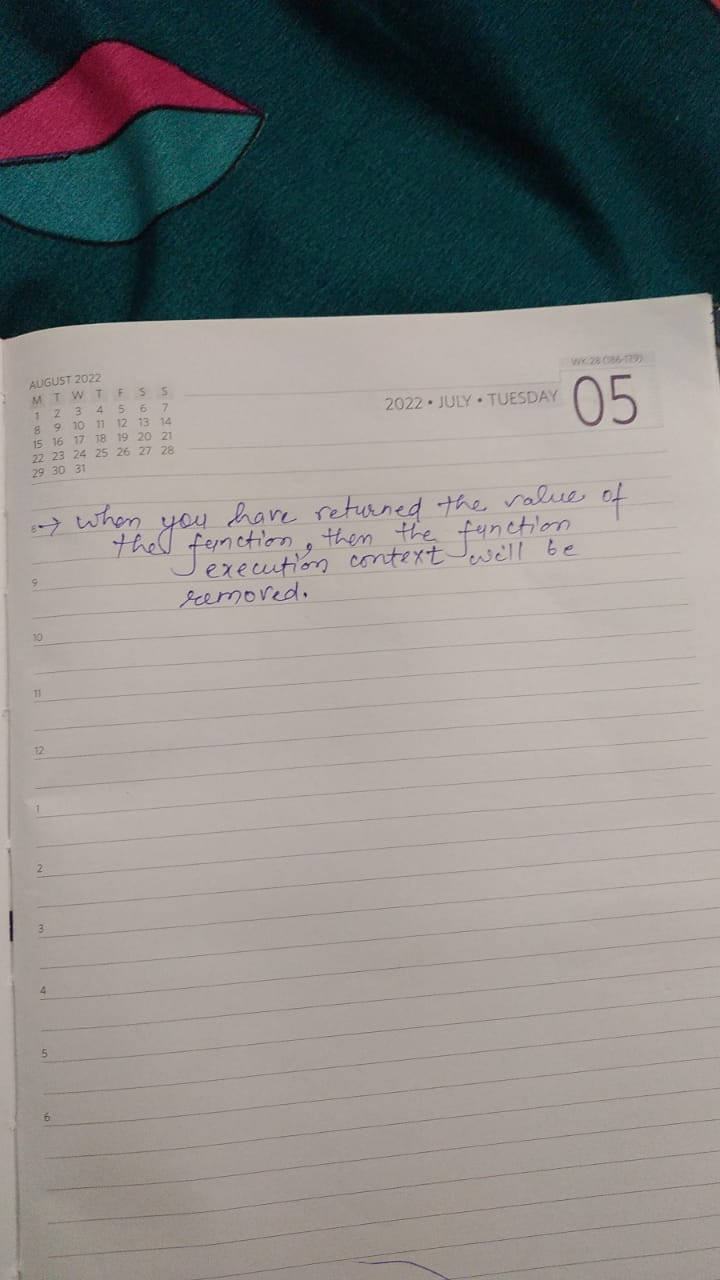 AUGUST 2022
M T W T F S S
1 2 3 4 5 6 7
8 9 10 11 12 13 14
15 16 17 18 19 20 21
22 23 24 25 26 27 28
29 30 31
WK 28 (186-179)
2022 • JULY • TUESDAY 05
8 → when you have returned the value of
the function, then the function
execution context will be
9
removed.
10
11
12
1
2
3
4
5
6